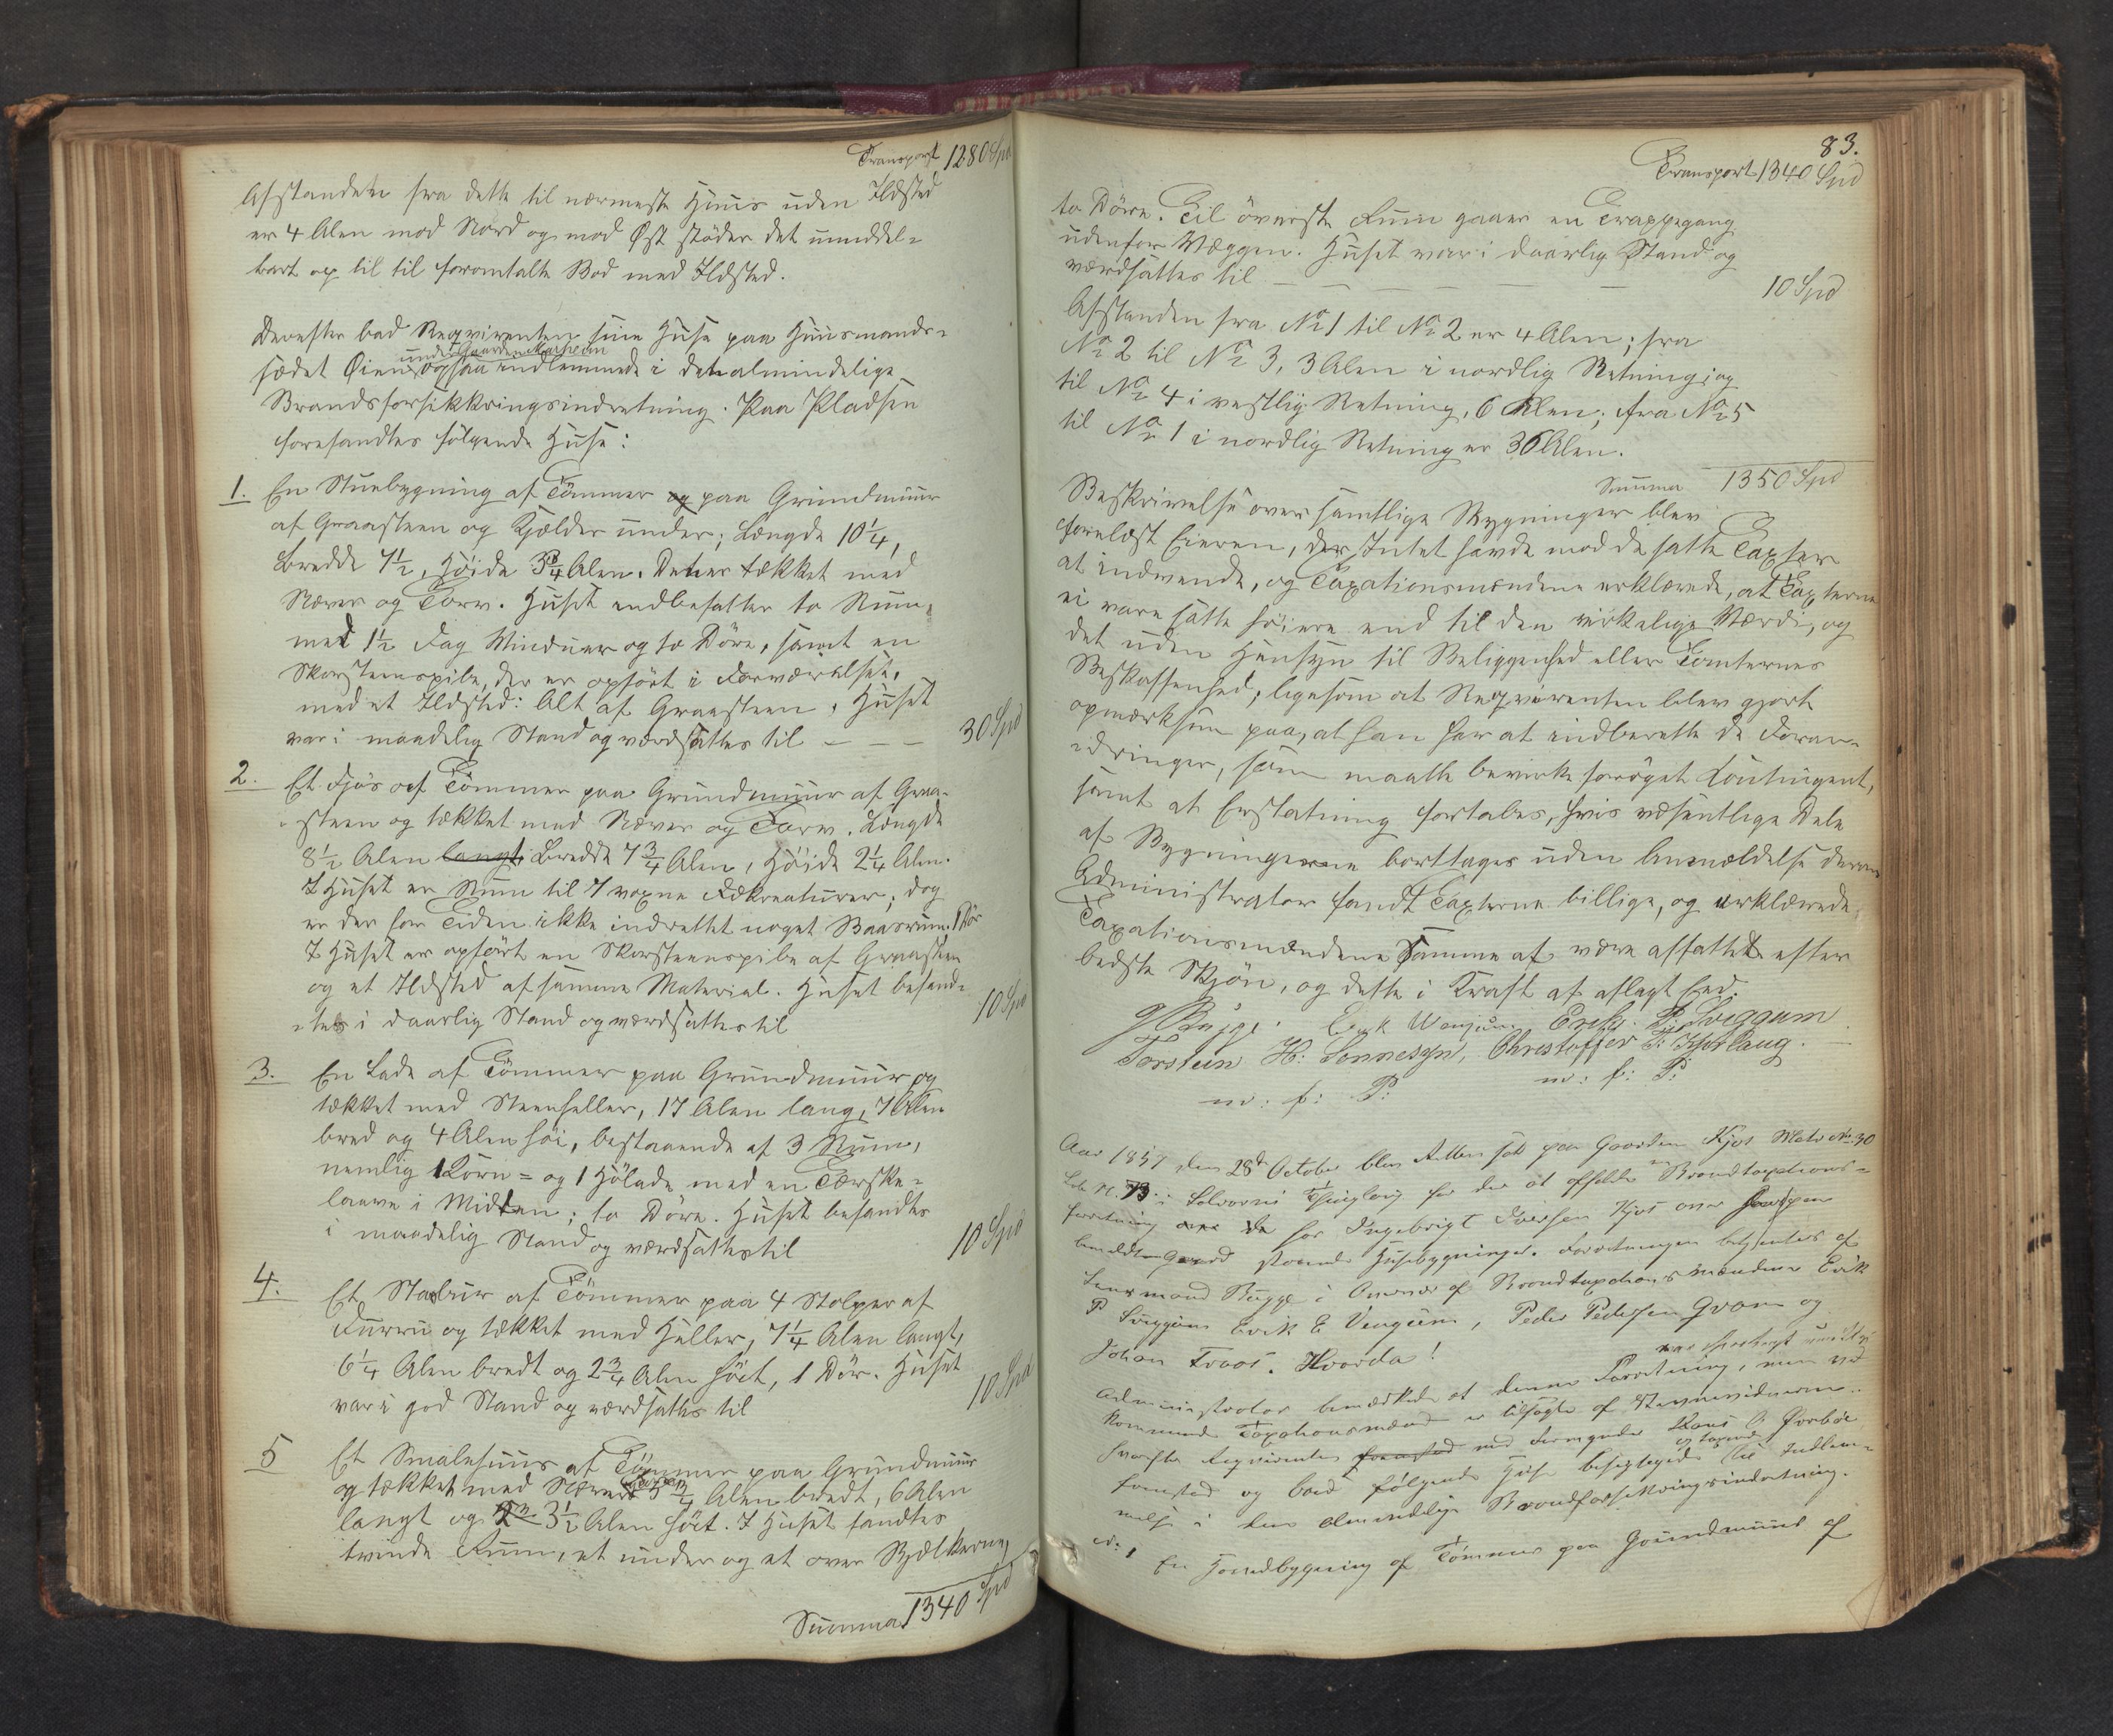 Transport 1280 Spd
Afstanden fra dette til nærmeste Huus uden Ildsted
er 4 Alen mod Nord og mod Øst støder det umiddel-
bart op til til foromtalte Bod med Ildsted.
Derefter bad Reqvirenten sine Huse paa Huusmands-
under Gaarden Marheim
sædet Øien ogsaa indlemmede i den almindelige
Brandforsikkringsindretning. Paa Pladsen
forefandtes følgende Huse:
1. En Stuebygning af Tømmer og paa Grundmuur
af Graasteen og Kjælder under; Længde 10 1/4,
Bredde 7 1/2, Høide 3 3/4 Alen. Den er tækket med
Næver og Torv. Huset indbefatter to Rum,
med 1 1/2 Fag Vinduer og to Døre, samt en
Skorsteenspibe, der er opført i Forværelset,
med et Ildsted: Alt af Graasteen. Huset
var i maadelig Stand og værdsattes til — — — 30 Spd
2. Et Fjøs af Tømmer paa Grundmuur af Graa-
steen og tækket med Næver og Torv. Længde
8 1/2 Alen langt, Bredde 7 3/4 Alen, Høide 2 1/4 Alen.
I Huset er Rum til 7 voxne Fækreaturer; dog
er der for Tiden ikke indrettet noget Baasrum. 1 Dør
I Huset er opført en Skorsteenspibe af Graasteen
og et Ildsted af samme Material. Huset befand-
tes i daarlig Stand og værdsattes til 10 Spd
3. En Lade af Tømmer paa Grundmuur og
tækket med Steenheller, 17 Alen lang, 7 Alen
bred og 4 Alen høi, bestaaende af 3 Rum,
nemlig 1 Korn- og 1 Hølade med en Tærske-
laave i Midten; to Døre. Huset befandtes
i maadelig Stand og værdsattes til 10 Spd
4. Et Stabuur af Tømmer paa 4 Stolper af
Furru og tækket med Heller, 7 1/4 Alen langt,
6 1/4 Alen bredt og 2 3/4 Alen høit, 1 Dør. Huset
var i god Stand og værdsattes til 10 Spd
5 Et Smalehuus af Tømmer paa Grundmuur
og tækket med Næver 5 3/4 Alen bredt, 6 Alen
langt og 3 1/2 Alen høit. I Huset fandtes
tvende Rum, et under og et over Bjelkerne,
Summa 1340 Spd
83.
Transport 1340 Spd
to Døre. Til øverste Rum gaaer en Trappegang
udenfor Væggen. Huset var i daarlig Stand og
værdsattes til — — — — — — 10 Spd
Afstanden fra No 1 til No 2 er 4 Alen; fra
No 2 til No 3, 3 Alen i nordlig Retning; og
til No 4 i vestlig Retning, 6 Alen; fra No 5
til No 1 i nordlig Retning er 36 Alen.
Summa 1350 Spd
Beskrivelse over samtlige Bygninger blev
forelæst Eieren, der Intet havde mod de satte Taxter
at indvende, og Taxationsmændene erklærede, at Taxterne
ei vare satte høiere end til den virkelige Værdi, og
det uden Hensyn til Beliggenhed eller Tomternes
Beskaffenhed, ligesom at Reqvirenten blev gjort
opmærksom paa, at han har at indberette de Foran-
dringer, som maatte bevirke forøget Contingent,
samt at Erstatning fortabes, hvis væsentlige Dele
af Bygningerne borttages uden Anmeldelse derom
Administrator fandt Taxterne billige, og erklærede
Taxationsmændene Samme at være affattet efter
bedste Skjøn, og dette i Kraft af aflagt Eed.
Bugge. Erik Venjum, Erik P: Sviggum
Torstein H: Sønnesyn, Christoffer S: Kjørlaug.
m: f: P: m: f: P:
Aar 1857 den 28de October blev Retten sat paa Gaarden Kjos Matr No 30
Løb N. 73 i Solvorns Thinglag for der at afholde en Brandtaxations-
forretning for Ingebrigt Iversen Kjos over paa
bemeldte Gaard staaende Husebygninger. Forretningen betjentes af
Lensmand Bugge i Overvær af Brandtaxationsmændene Erik
P Sviggum Erik E Venjum, Peder Pedersen Qvam og
Johan Traas. Hvorda!
Administrator bemærkede at denne Forretning, men ved
kommende Taxationsmænd er tilsagte af Stevnevidnerne.
Reqvirenten fremstod med
fremstod og bad følgende Huse besigtigede og taxerede til Indlem-
melse i den almindelige Brandforsikringsindretning.
No 1 En bygning af Tømmer paa Grundmuur af